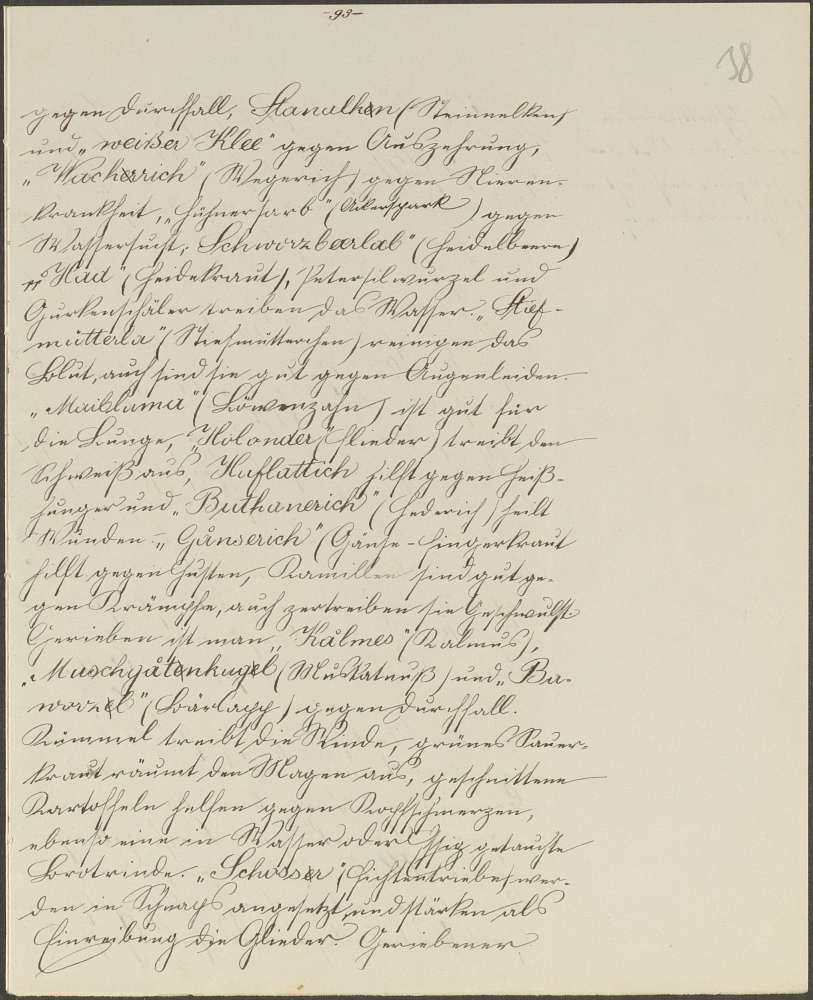 -93-
38
gegen Durchfall, Stanalken (Steinnelken)
und „weißer Klee" gegen Auszehrung,
„Wacherrich" (Wegerich) gegen Nieren-
krankheit, „Hühnersarb" (Ackerspark) gegen
Wassersucht, Schworzbarlab" (Heidelbeere)
„Had" (Heidekraut), Petersilwurzel und
Gurkenschäler treiben das Wasser. „Stief-
mütterla" (Stiefmütterchen) reinigen das
Blut, auch sind sie gut gegen Augenleiden.
„Maibluma" (Löwenzahn) ist gut für
die Lunge, „Holonder" (Flieder) treibt den
Schweiß aus, Huflattich hilft gegen Heiß-
hunger und „Buthanerich" (Hederich) heilt
Wunden. „Gånserich" (Gänse-Fingerkraut
hilft gegen Husten, Kamillen sind gut ge-
gen Krämpfe, auch zertreiben sie Geschwulst.
Gerieben ist man „Kålmes" (Kalmus),
„Muschgåtenkugel (Muskatnuß) und „Ba-
worzel" (Bärlapp) gegen Durchfall.
Kümmel treibt die Winde, grünes Sauer-
kraut räumt den Magen aus, geschnittene
Kartoffeln helfen gegen Kopfschmerzen,
ebenso eine in Wasser oder Essig getauchte
Brotrinde. „Schosser" (Fichtentriebe) wer-
den in Schnaps angesetzt und stärken als
Einreibung die Glieder. Geriebener